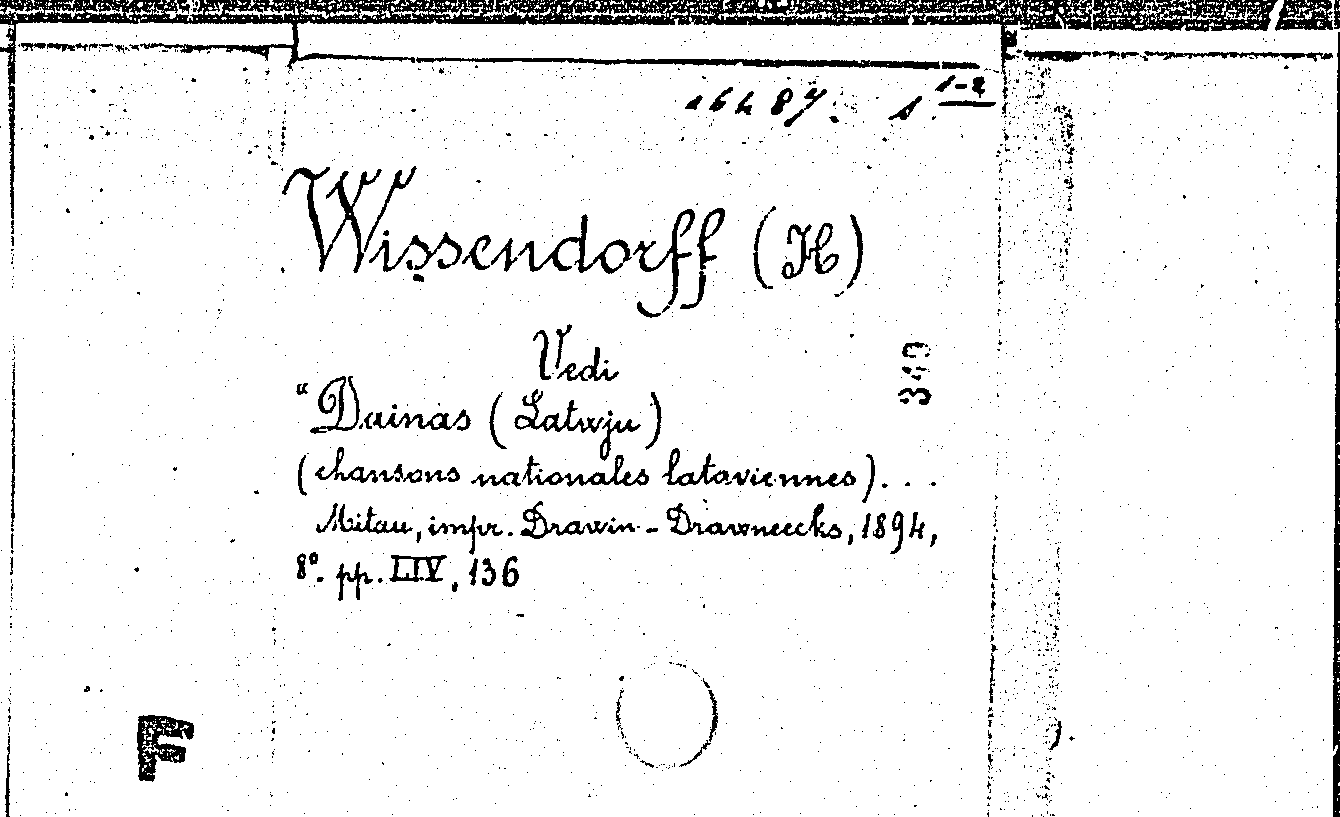 16487. 1 1-2
Wissendorff (H)
Vedi
"Dainas (Latwju)
(chansons nationales lataviennes)...
Mitau, impr. Drawin-Drawneecks, 1894,
8°. pp. LIV, 136
349
F